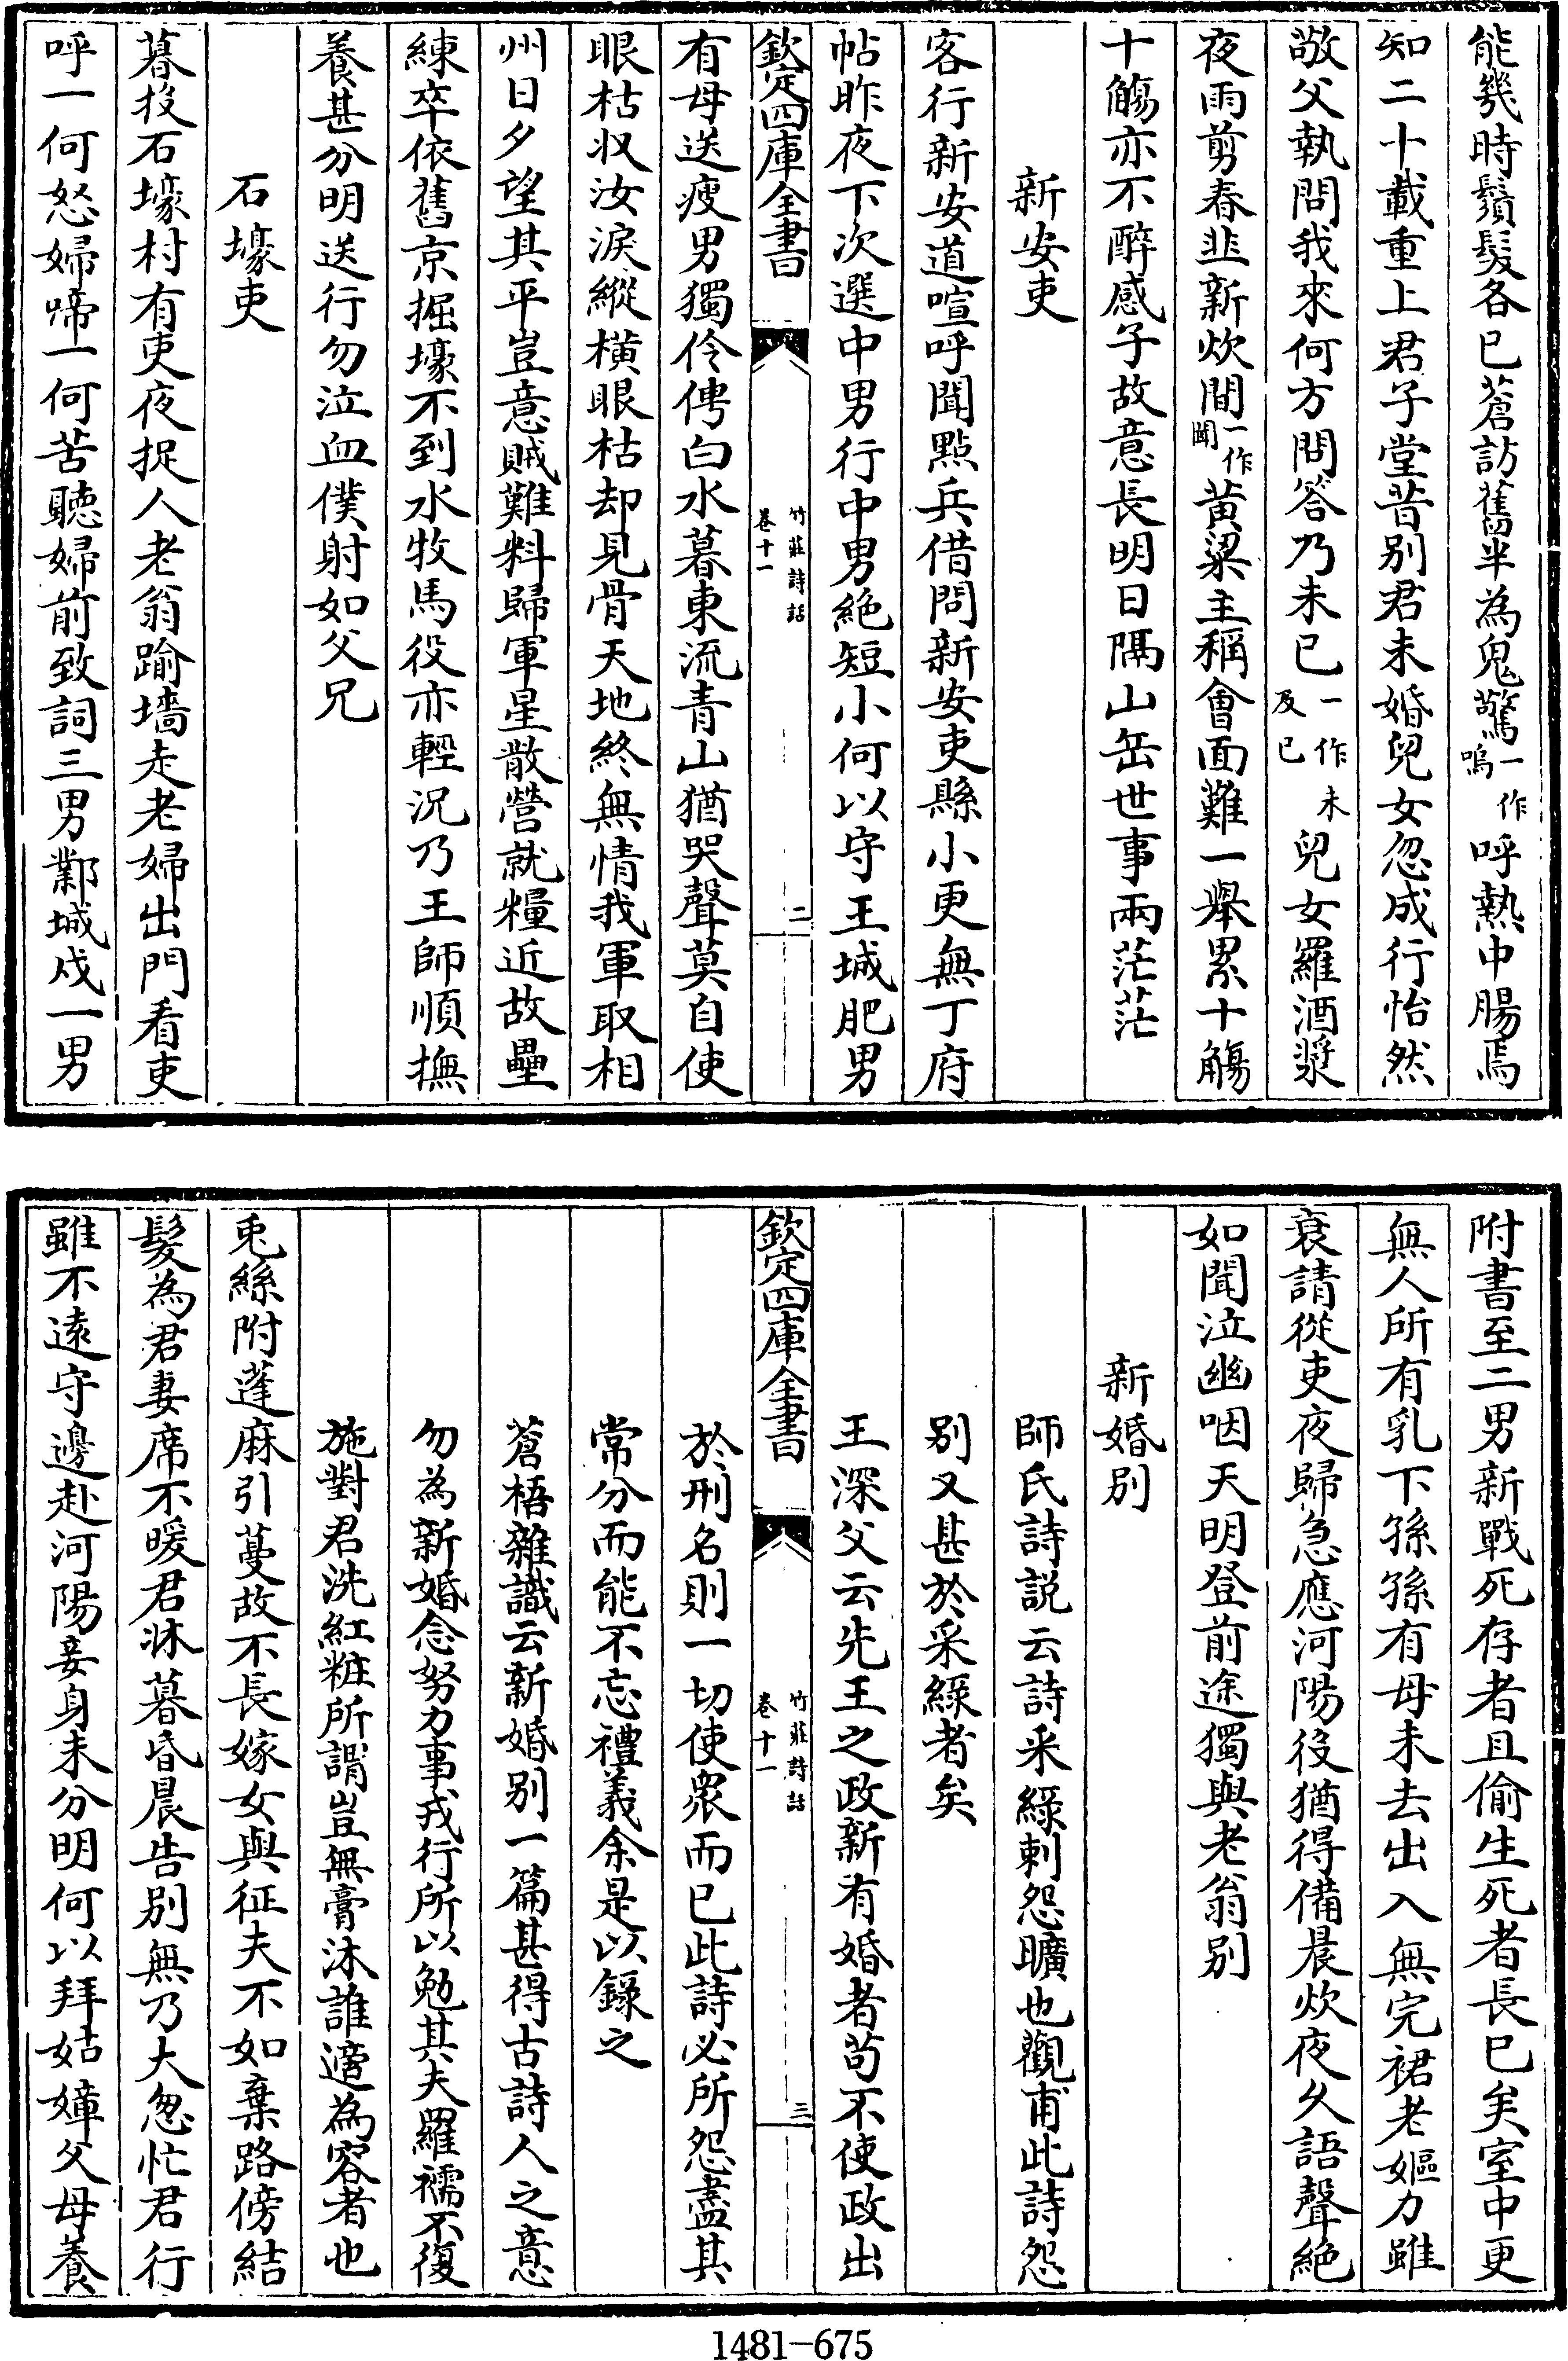 能幾時鬢髮各已蒼訪舊半為鬼驚一作嗚呼熱中腸焉
知二十載重上君子堂昔别君未婚兒女忽成行怡然
敬父執問我來何方問答乃未已一作未及已兒女羅酒漿
夜雨剪春韭新炊間一作聞黄粱主稱會面難一舉累十觴
十觴亦不醉感子故意長明日隔山岳世事兩茫茫
新安吏
客行新安道喧呼聞點兵借問新安吏縣小更無丁府
帖昨夜下次選中男行中男絶短小何以守王城肥男
欽定四庫全書
竹莊詩話
卷十一
二
有母送瘦男獨伶俜白水暮東流青山猶哭聲莫自使
眼枯収汝淚縱横眼枯却見骨天地終無情我軍取相
州日夕望其平豈意賊難料歸軍星散營就糧近故壘
練卒依舊京掘壕不到水牧馬役亦輕況乃王師順撫
養甚分明送行勿泣血僕射如父兄
石壕吏
暮投石壕村有吏夜捉人老翁踰墻走老婦出門看吏
呼一何怒婦啼一何苦聽婦前致詞三男鄴城戍一男
附書至二男新戰死存者且偷生死者長已矣室中更
無人所有乳下孫孫有母未去出入無完裙老嫗力雖
衰請從吏夜歸急應河陽役猶得備晨炊夜久語聲絶
如聞泣幽咽天明登前途獨與老翁别
新婚别
師氏詩説云詩采緑刺怨曠也觀甫此詩怨
别又甚於采緑者矣
王深父云先王之政新有婚者茍不使政出
欽定四庫全書
竹莊詩話
卷十一
三
於刑名則一切使衆而已此詩必所怨盡其
常分而能不忘禮義余是以録之
蒼梧雜識云新婚别一篇甚得古詩人之意
勿為新婚念努力事戎行所以勉其夫羅襦不復
施對君洗紅粧所謂豈無膏沐誰適為容者也
兎絲附蓬麻引蔓故不長嫁女與征夫不如棄路傍結
髮為君妻席不暖君牀暮昏晨告别無乃大怱忙君行
雖不遠守邊赴河陽妾身未分明何以拜姑嫜父母養
1481-675